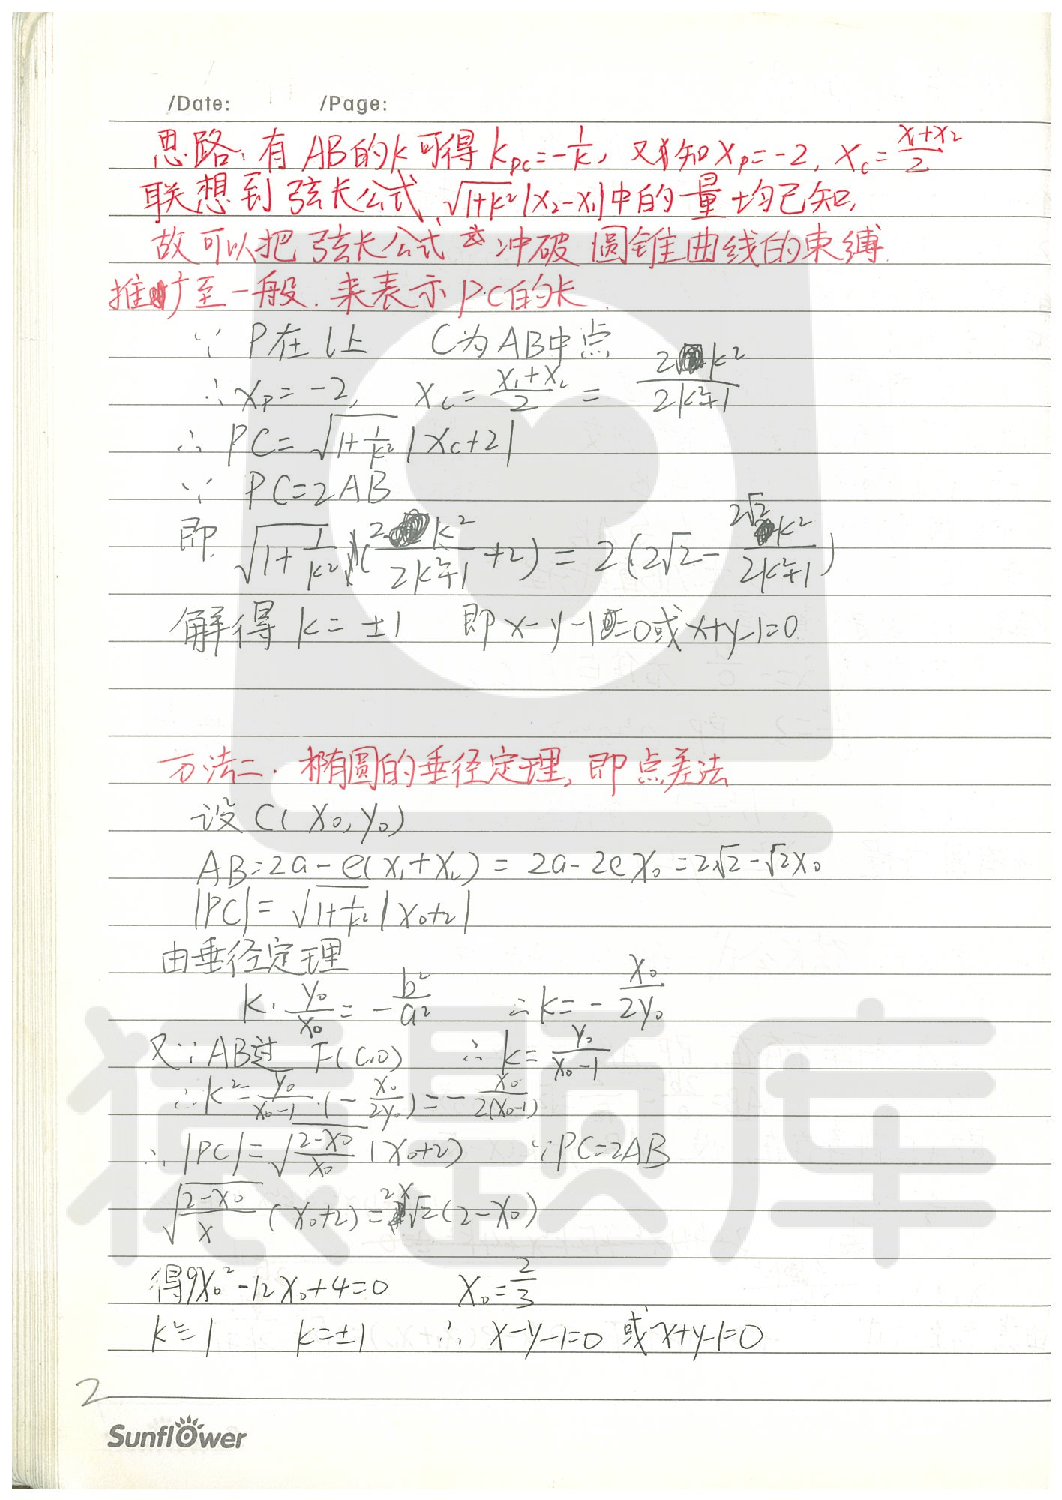 /Date: /Page:
思路:有AB的k可得k_{PC}=-\frac{1}{k}, 又知x_P=-2, x_C=\frac{x_1+x_2}{2}
联想到弦长公式,\sqrt{1+k^2}|x_2-x_1|中的量均已知,
故可以把弦长公式 冲破圆锥曲线的束缚
推广至一般.来表示PC的长
∵ P在l上 C为AB中点
∴x_P=-2, x_C=\frac{x_1+x_2}{2}=\frac{2k^2}{2k^2+1}
∴PC=\sqrt{1+\frac{1}{k^2}}|x_C+2|
∵ PC=2AB
即 \sqrt{1+\frac{1}{k^2}}(\frac{2k^2}{2k^2+1}+2)=2(2\sqrt{2}-\frac{2\sqrt{2}k^2}{2k^2+1})
解得 k=±1 即x-y-1=0或x+y-1=0
方法二.椭圆的垂径定理,即点差法
设C(x_0,y_0)
AB=2a-e(x_1+x_2)=2a-2ex_0=2\sqrt{2}-\sqrt{2}x_0
|PC|=\sqrt{1+\frac{1}{k^2}}|x_0+2|
由垂径定理
k·\frac{y_0}{x_0}=-\frac{b^2}{a^2} ∴k=-\frac{x_0}{2y_0}
又∵AB过F(c,0) ∴k=\frac{y_0}{x_0-1}
∴k^2=\frac{y_0}{x_0-1}·(-\frac{x_0}{2y_0})=-\frac{x_0}{2(x_0-1)}
∴|PC|=\sqrt{\frac{2-x_0}{x_0}}(x_0+2) ∵PC=2AB
\sqrt{\frac{2-x_0}{x}}(x_0+2)=2×\sqrt{2}(2-x_0)
得9x_0^2-12x_0+4=0 x_0=\frac{2}{3}
k^2=1 k=±1 ∴x-y-1=0 或x+y-1=0
2
Sunflower
猿题库